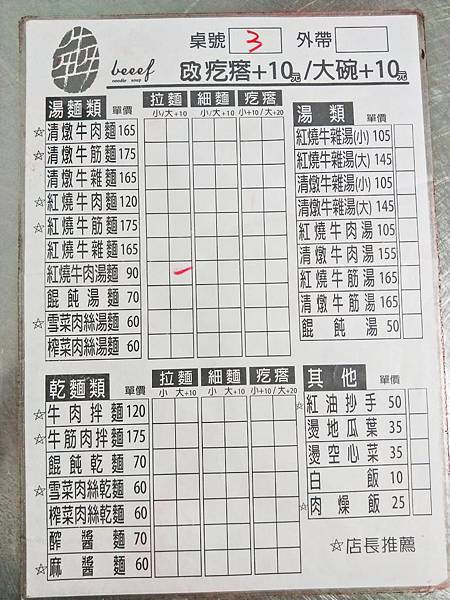 桌號 3 外帶
beeef
noodle soup
改疙瘩+10元/大碗+10元
湯麵類 單價 拉麵 細麵 疙瘩
小/大+10 小/大+10 小+10/大+20
☆清燉牛肉麵 165
☆清燉牛筋麵 175
清燉牛雜麵 165
☆紅燒牛肉麵 120
☆紅燒牛筋麵 175
紅燒牛雜麵 165
紅燒牛肉湯麵 90
餛飩湯麵 70
☆雪菜肉絲湯麵 60
榨菜肉絲湯麵 60
湯類 單價
紅燒牛雜湯(小) 105
紅燒牛雜湯(大) 145
清燉牛雜湯(小) 105
清燉牛雜湯(大) 145
紅燒牛肉湯 105
清燉牛肉湯 155
紅燒牛筋湯 165
清燉牛筋湯 165
餛飩湯 50
乾麵類 單價 拉麵 細麵 疙瘩
小 大+10 小 大+10 小+10/大+20
☆牛肉拌麵 120
☆牛筋肉拌麵 175
餛飩乾麵 70
☆雪菜肉絲乾麵 60
榨菜肉絲乾麵 60
醡醬麵 70
☆麻醬麵 60
其他 單價
☆紅油抄手 50
燙地瓜葉 35
燙空心菜 35
白飯 10
☆肉燥飯 25
☆店長推薦